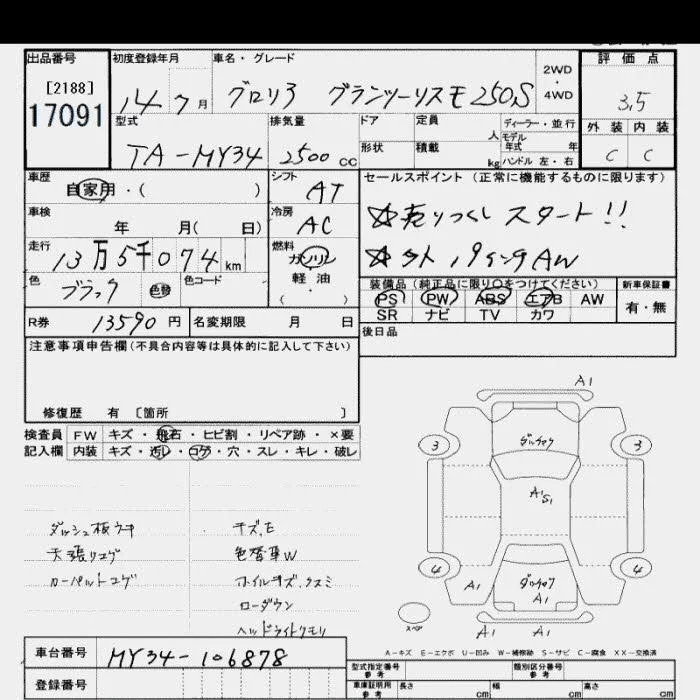 出品番号 初度登録年月 車名・グレード 2WD・4WD 評価点
[2188]
17091
14 7月 グロリア グランツーリスモ250S 3.5
型式 排気量 ドア 定員 人 ディーラー・並行 外装 内装
TA-MY34 2500cc 形状 積載 kg モデル年式 年 ハンドル 左・右 C C
車歴 シフト セールスポイント(正常に機能するものに限ります)
自家用・( ) AT
車検 冷房 ☆売りつくしスタート!!
年 月( 日) AC
走行 燃料 ☆外19インチAW
13万5千074km ガソリン
軽・油
( ・ )
色 色替 色コード 装備品(純正品に限り○をつけてください) 新車保証書
ブラック PS PW ABS エアB AW 有・無
SR ナビ TV カワ
R券 13590円 名変期限 月 日 後日品
注意事項申告欄(不具合内容等は具体的に記入して下さい)
修復歴 有 〔箇所 〕
検査員 FW キズ・飛石・ヒビ割・リペア跡・×要
記入欄 内装 キズ・汚レ・コゲ・穴・スレ・キレ・破レ
A1
3 3
A1 S1
4 4
A1 A1
A1 A1
スペア
ダッシュ板ウキ キズ,E
天張リコゲ 色替車W
カーペットコゲ ホイルキズ,クスミ
ローダウン
ヘッドライトクモリ
A-キズ E-エクボ U-凹み W-補修跡 S-サビ C-腐食 XX-交換済
車台番号 MY34-106878
型式指定番号 参考 類別区分番号 参考
登録番号 車庫証明用 参考 長さ cm 幅 cm 高さ cm